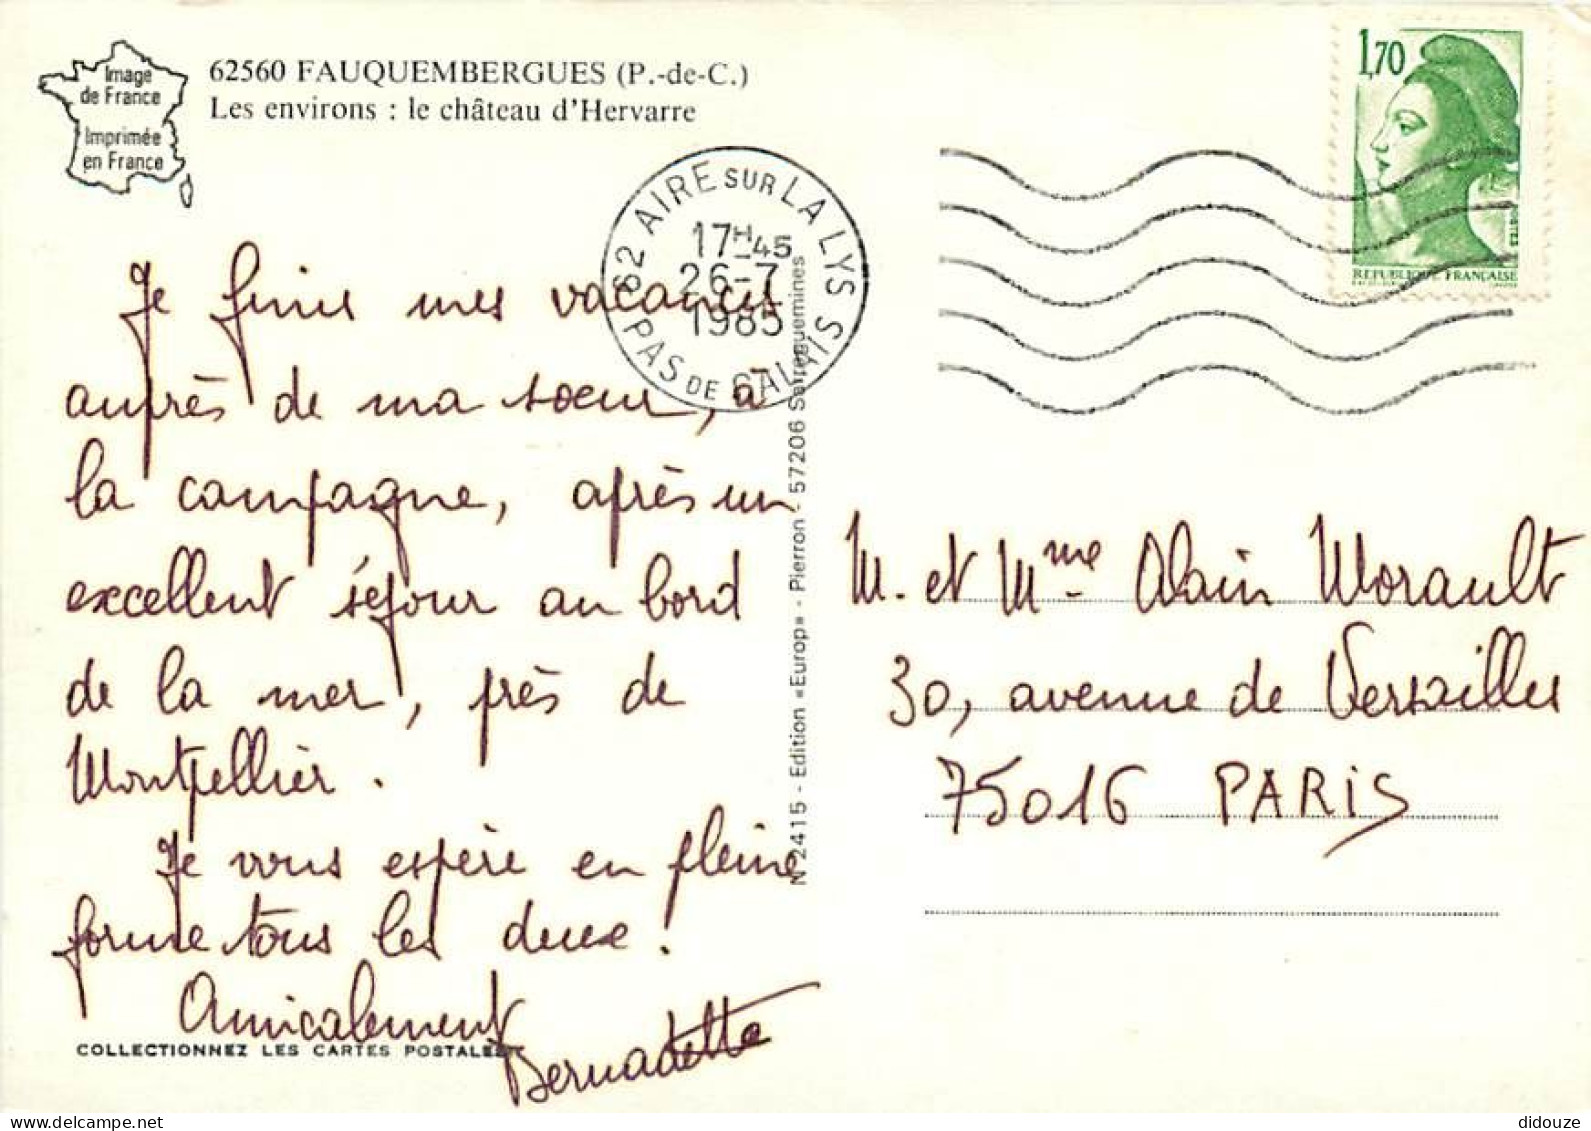 Image
de France
Imprimée
en France
62560 FAUQUEMBERGUES (P.-de-C.)
Les environs : le château d'Hervarre
1,70
REPUBLIQUE FRANÇAISE
62 AIRE SUR LA LYS
17H45
26-7
1985
PAS DE CALAIS
Je finis mes vacances
auprès de ma soeur, à
la campagne, après un
excellent séjour au bord
de la mer, près de
Montpellier.
Je vous espère en pleine
forme tous les deux !
Amicalement
Bernadette
COLLECTIONNEZ LES CARTES POSTALES
N° 2415 - Edition «Europ» - Pierron - 57206 Sarreguemines
M. et Mme Alain Morault
30, avenue de Versailles
75016 PARIS
delcampe.net
didouze